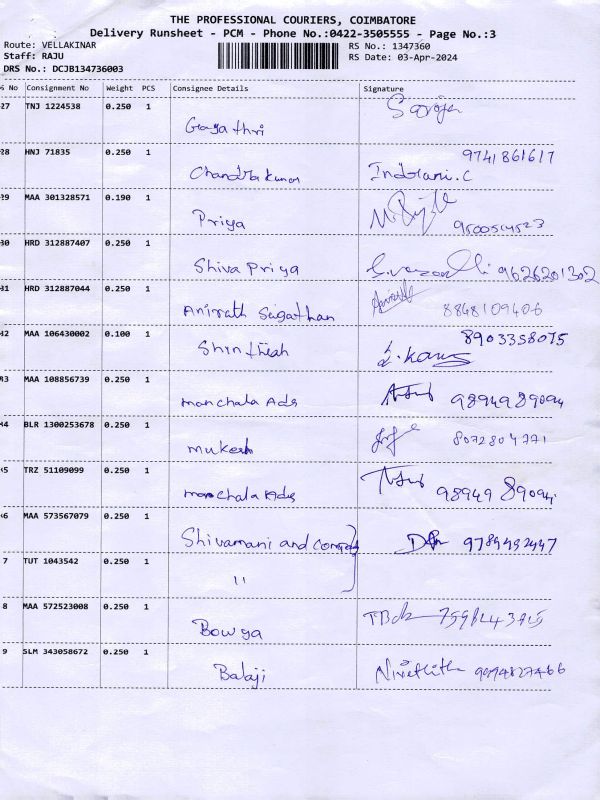 THE PROFESSIONAL COURIERS, COIMBATORE
Delivery Runsheet - PCM - Phone No.:0422-3505555 - Page No.:3
Route: VELLAKINAR RS No.: 1347360
Staff: RAJU RS Date: 03-Apr-2024
DRS No.: DCJB134736003
No Consignment No Weight PCS Consignee Details Signature
27 TNJ 1224538 0.250 1
28 HNJ 71835 0.250 1 9741861617
Chandra kumar Indrani.C
29 MAA 301328571 0.190 1
Priya
30 HRD 312887407 0.250 1
Shiva Priya 9626201302
31 HRD 312887044 0.250 1
8848109406
MAA 106430002 0.100 1 8903358075
MAA 108856739 0.250 1
manchala Ads 9894989094
BLR 1300253678 0.250 1
mukesh 8072804771
TRZ 51109099 0.250 1
manchala Ads 9894989094
MAA 573567079 0.250 1
Shivamani and company
7 TUT 1043542 0.250 1
"
8 MAA 572523008 0.250 1
Bowya
9 SLM 343058672 0.250 1
Balaji